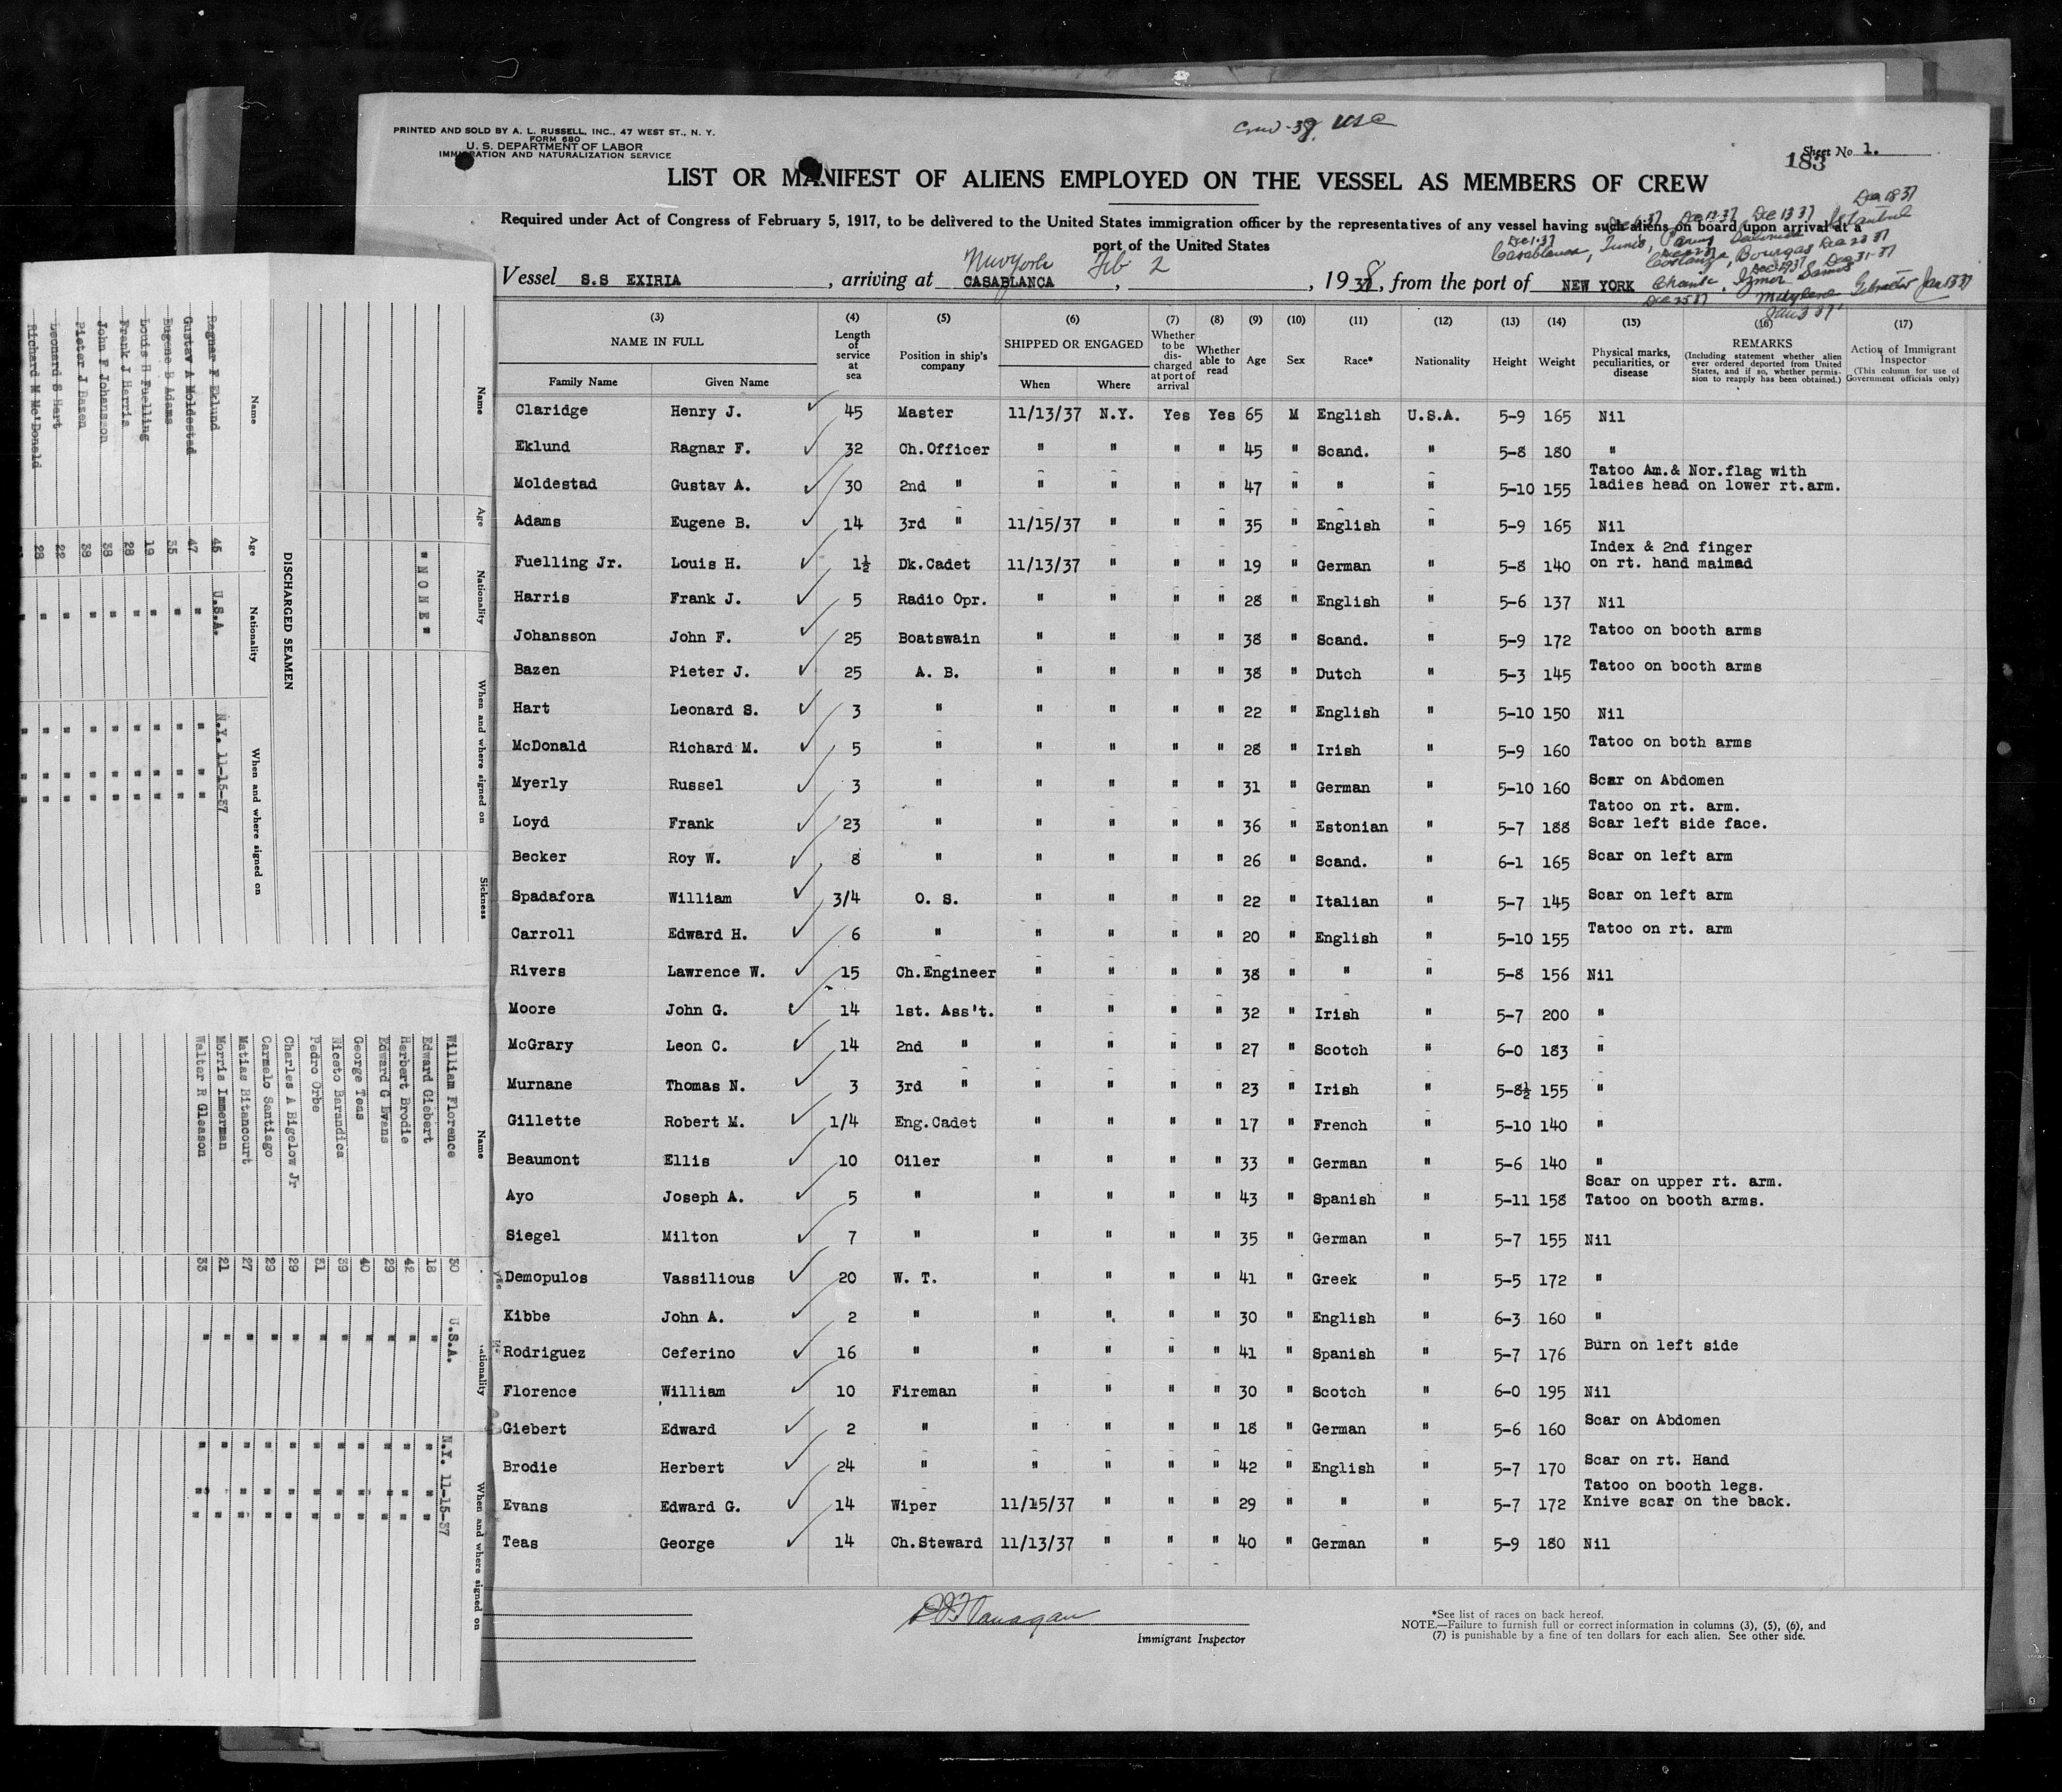 Crew-38. USC
PRINTED AND SOLD BY A. L. RUSSELL, INC., 47 WEST ST., N. Y.
FORM 680
U. S. DEPARTMENT OF LABOR
IMMIGRATION AND NATURALIZATION SERVICE
Sheet No 1.
183
LIST OR MANIFEST OF ALIENS EMPLOYED ON THE VESSEL AS MEMBERS OF CREW
Required under Act of Congress of February 5, 1917, to be delivered to the United States immigration officer by the representatives of any vessel having such aliens on board upon arrival at a
port of the United States
Dec 13 37 Istanbul Dec 18 37
Dec 1-37 Casablanca, Tunis, Bourgas Dec 23 37
Izmir Samos Dec 31-37
Gibraltar Jan 13 37
New York Feb. 2
Vessel S.S EXIRIA, arriving at CASABLANCA, , 1938, from the port of NEW YORK
(3) (4) (5) (6) (7) (8) (9) (10) (11) (12) (13) (14) (15) (16) (17)
NAME IN FULL Length of service at sea Position in ship's company SHIPPED OR ENGAGED Whether to be discharged at port of arrival Whether able to read Age Sex Race* Nationality Height Weight Physical marks, peculiarities, or disease REMARKS (Including statement whether alien ever ordered deported from United States, and if so, whether permission to reapply has been obtained.) Action of Immigrant Inspector (This column for use of Government officials only)
Family Name Given Name When Where
Claridge Henry J. 45 Master 11/13/37 N.Y. Yes Yes 65 M English U.S.A. 5-9 165 Nil
Eklund Ragnar F. 32 Ch.Officer " " " " 45 " Scand. " 5-8 180 "
Tatoo Am.& Nor.flag with
Moldestad Gustav A. 30 2nd " " " " " 47 " " " 5-10 155 ladies head on lower rt.arm.
Adams Eugene B. 14 3rd " 11/15/37 " " " 35 " English " 5-9 165 Nil
Index & 2nd finger
Fuelling Jr. Louis H. 1½ Dk.Cadet 11/13/37 " " " 19 " German " 5-8 140 on rt. hand maimad
Harris Frank J. 5 Radio Opr. " " " " 28 " English " 5-6 137 Nil
Johansson John F. 25 Boatswain " " " " 38 " Scand. " 5-9 172 Tatoo on booth arms
Bazen Pieter J. 25 A. B. " " " " 38 " Dutch " 5-3 145 Tatoo on booth arms
Hart Leonard S. 3 " " " " " 22 " English " 5-10 150 Nil
McDonald Richard M. 5 " " " " " 28 " Irish " 5-9 160 Tatoo on both arms
Myerly Russel 3 " " " " " 31 " German " 5-10 160 Scar on Abdomen
Tatoo on rt. arm.
Loyd Frank 23 " " " " " 36 " Estonian " 5-7 188 Scar left side face.
Becker Roy W. 8 " " " " " 26 " Scand. " 6-1 165 Scar on left arm
Spadafora William 3/4 O. S. " " " " 22 " Italian " 5-7 145 Scar on left arm
Carroll Edward H. 6 " " " " " 20 " English " 5-10 155 Tatoo on rt. arm
Rivers Lawrence W. 15 Ch.Engineer " " " " 38 " " " 5-8 156 Nil
Moore John G. 14 1st. Ass't. " " " " 32 " Irish " 5-7 200 "
McGrary Leon C. 14 2nd " " " " " 27 " Scotch " 6-0 183 "
Murnane Thomas N. 3 3rd " " " " " 23 " Irish " 5-8½ 155 "
Gillette Robert M. 1/4 Eng.Cadet " " " " 17 " French " 5-10 140 "
Beaumont Ellis 10 Oiler " " " " 33 " German " 5-6 140 "
Scar on upper rt. arm.
Ayo Joseph A. 5 " " " " " 43 " Spanish " 5-11 158 Tatoo on booth arms.
Siegel Milton 7 " " " " " 35 " German " 5-7 155 Nil
Demopulos Vassilious 20 W. T. " " " " 41 " Greek " 5-5 172 "
Kibbe John A. 2 " " " " " 30 " English " 6-3 160 "
Rodriguez Ceferino 16 " " " " " 41 " Spanish " 5-7 176 Burn on left side
Florence William 10 Fireman " " " " 30 " Scotch " 6-0 195 Nil
Giebert Edward 2 " " " " " 18 " German " 5-6 160 Scar on Abdomen
Brodie Herbert 24 " " " " " 42 " English " 5-7 170 Scar on rt. Hand
Tatoo on booth legs.
Evans Edward G. 14 Wiper 11/15/37 " " " 29 " " " 5-7 172 Knive scar on the back.
Teas George 14 Ch.Steward 11/13/37 " " " 40 " German " 5-9 180 Nil
Immigrant Inspector
*See list of races on back hereof.
NOTE.—Failure to furnish full or correct information in columns (3), (5), (6), and
(7) is punishable by a fine of ten dollars for each alien. See other side.
Name Age Nationality When and where signed on Sickness
"NONE"
DISCHARGED SEAMEN
Name Age Nationality When and where signed on
Ragnar F Eklund 45 U.S.A. N.Y. 11-15-37
Gustav A Moldestad 47 " " " "
Eugene B Adams 35 " " " "
Louis H Fuelling 19 " " " "
Frank J Harris 28 " " " "
John F Johansson 38 " " " "
Pieter J Bazen 38 " " " "
Leonard S Hart 22 " " " "
Richard M Mc'Donald 28 " " " "
Name Nationality When and where signed on
William Florence 30 U.S.A. N.Y. 11-15-37
Edward Giebert 18 " " " "
Herbert Brodie 42 " " " "
Edward G Evans 29 " " " "
George Teas 40 " " " "
Niceto Barandica 39 " " " "
Pedro Orbe 31 " " " "
Charles A Bigelow Jr 29 " " " "
Carmelo Santiago 29 " " " "
Matias Bitancourt 27 " " " "
Morris Immerman 21 " " " "
Walter R Gleason 33 " " " "